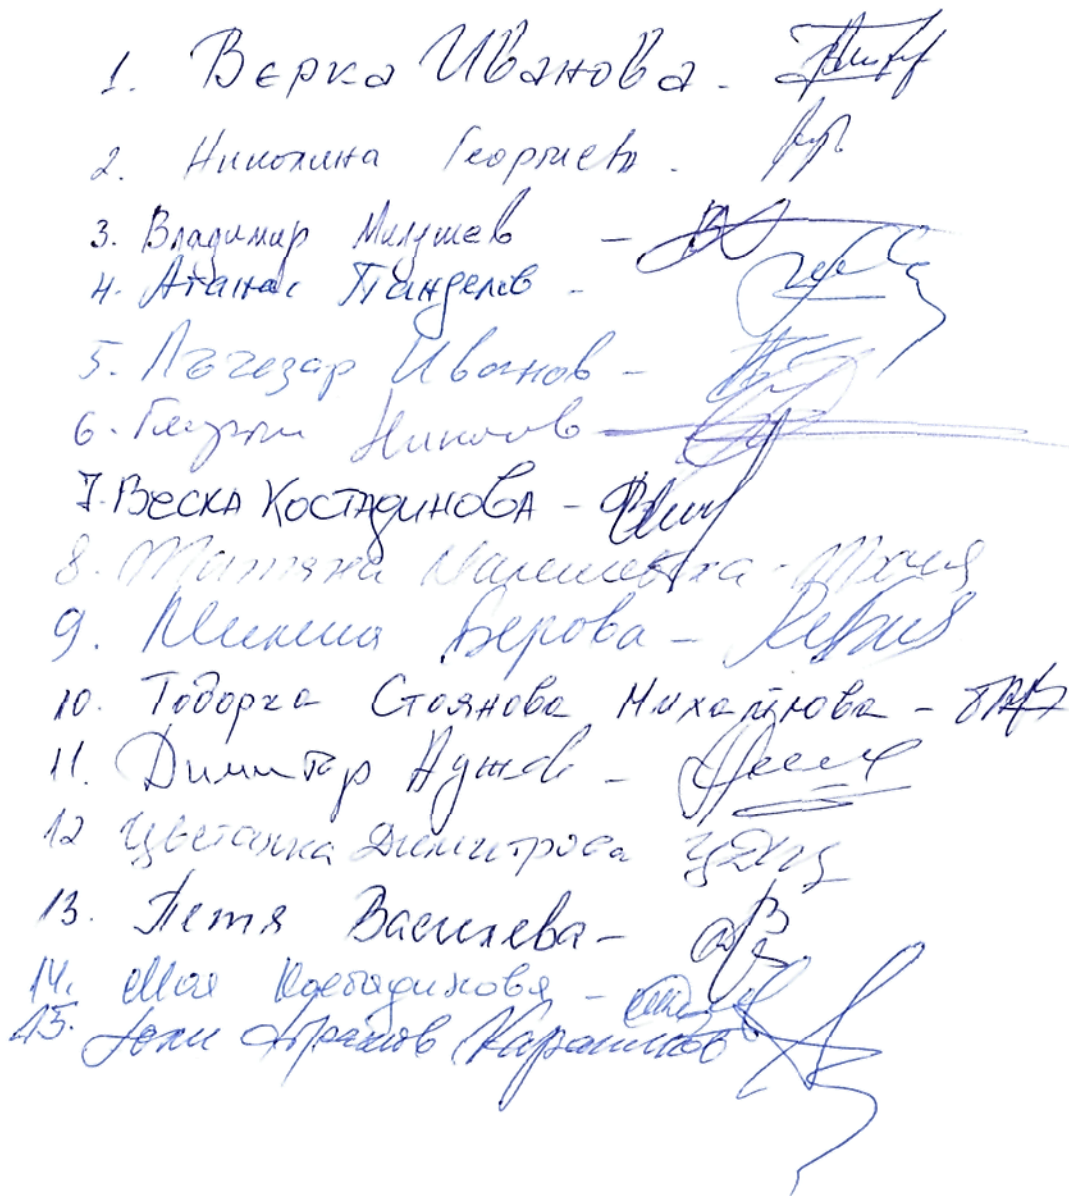 1. Верка Иванова -
2. Николина Георгиева -
3. Владимир Милушев -
4. Атанас Панделов -
5. Лъчезар Иванов -
6. Георги Николов
7. Веска Костадинова -
8. Татяна -
9. Милена Берова -
10. Тодорка Стоянова Михайлова -
11. Димитър -
12 Цветанка Димитрова
13. Петя Василева -
14. Мая Костадинова -
15.